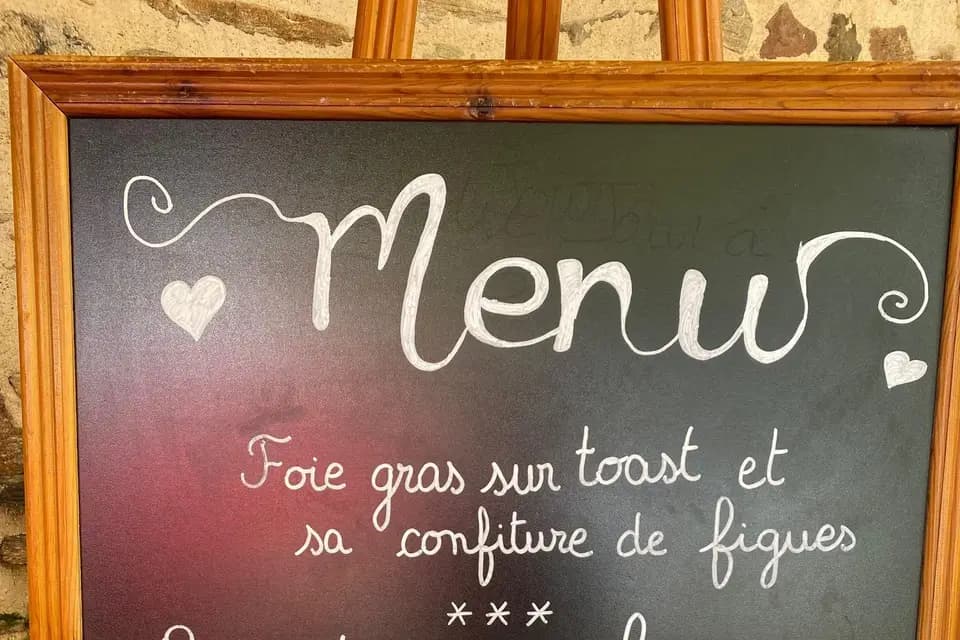 Menu
Foie gras sur toast et
sa confiture de figues
***